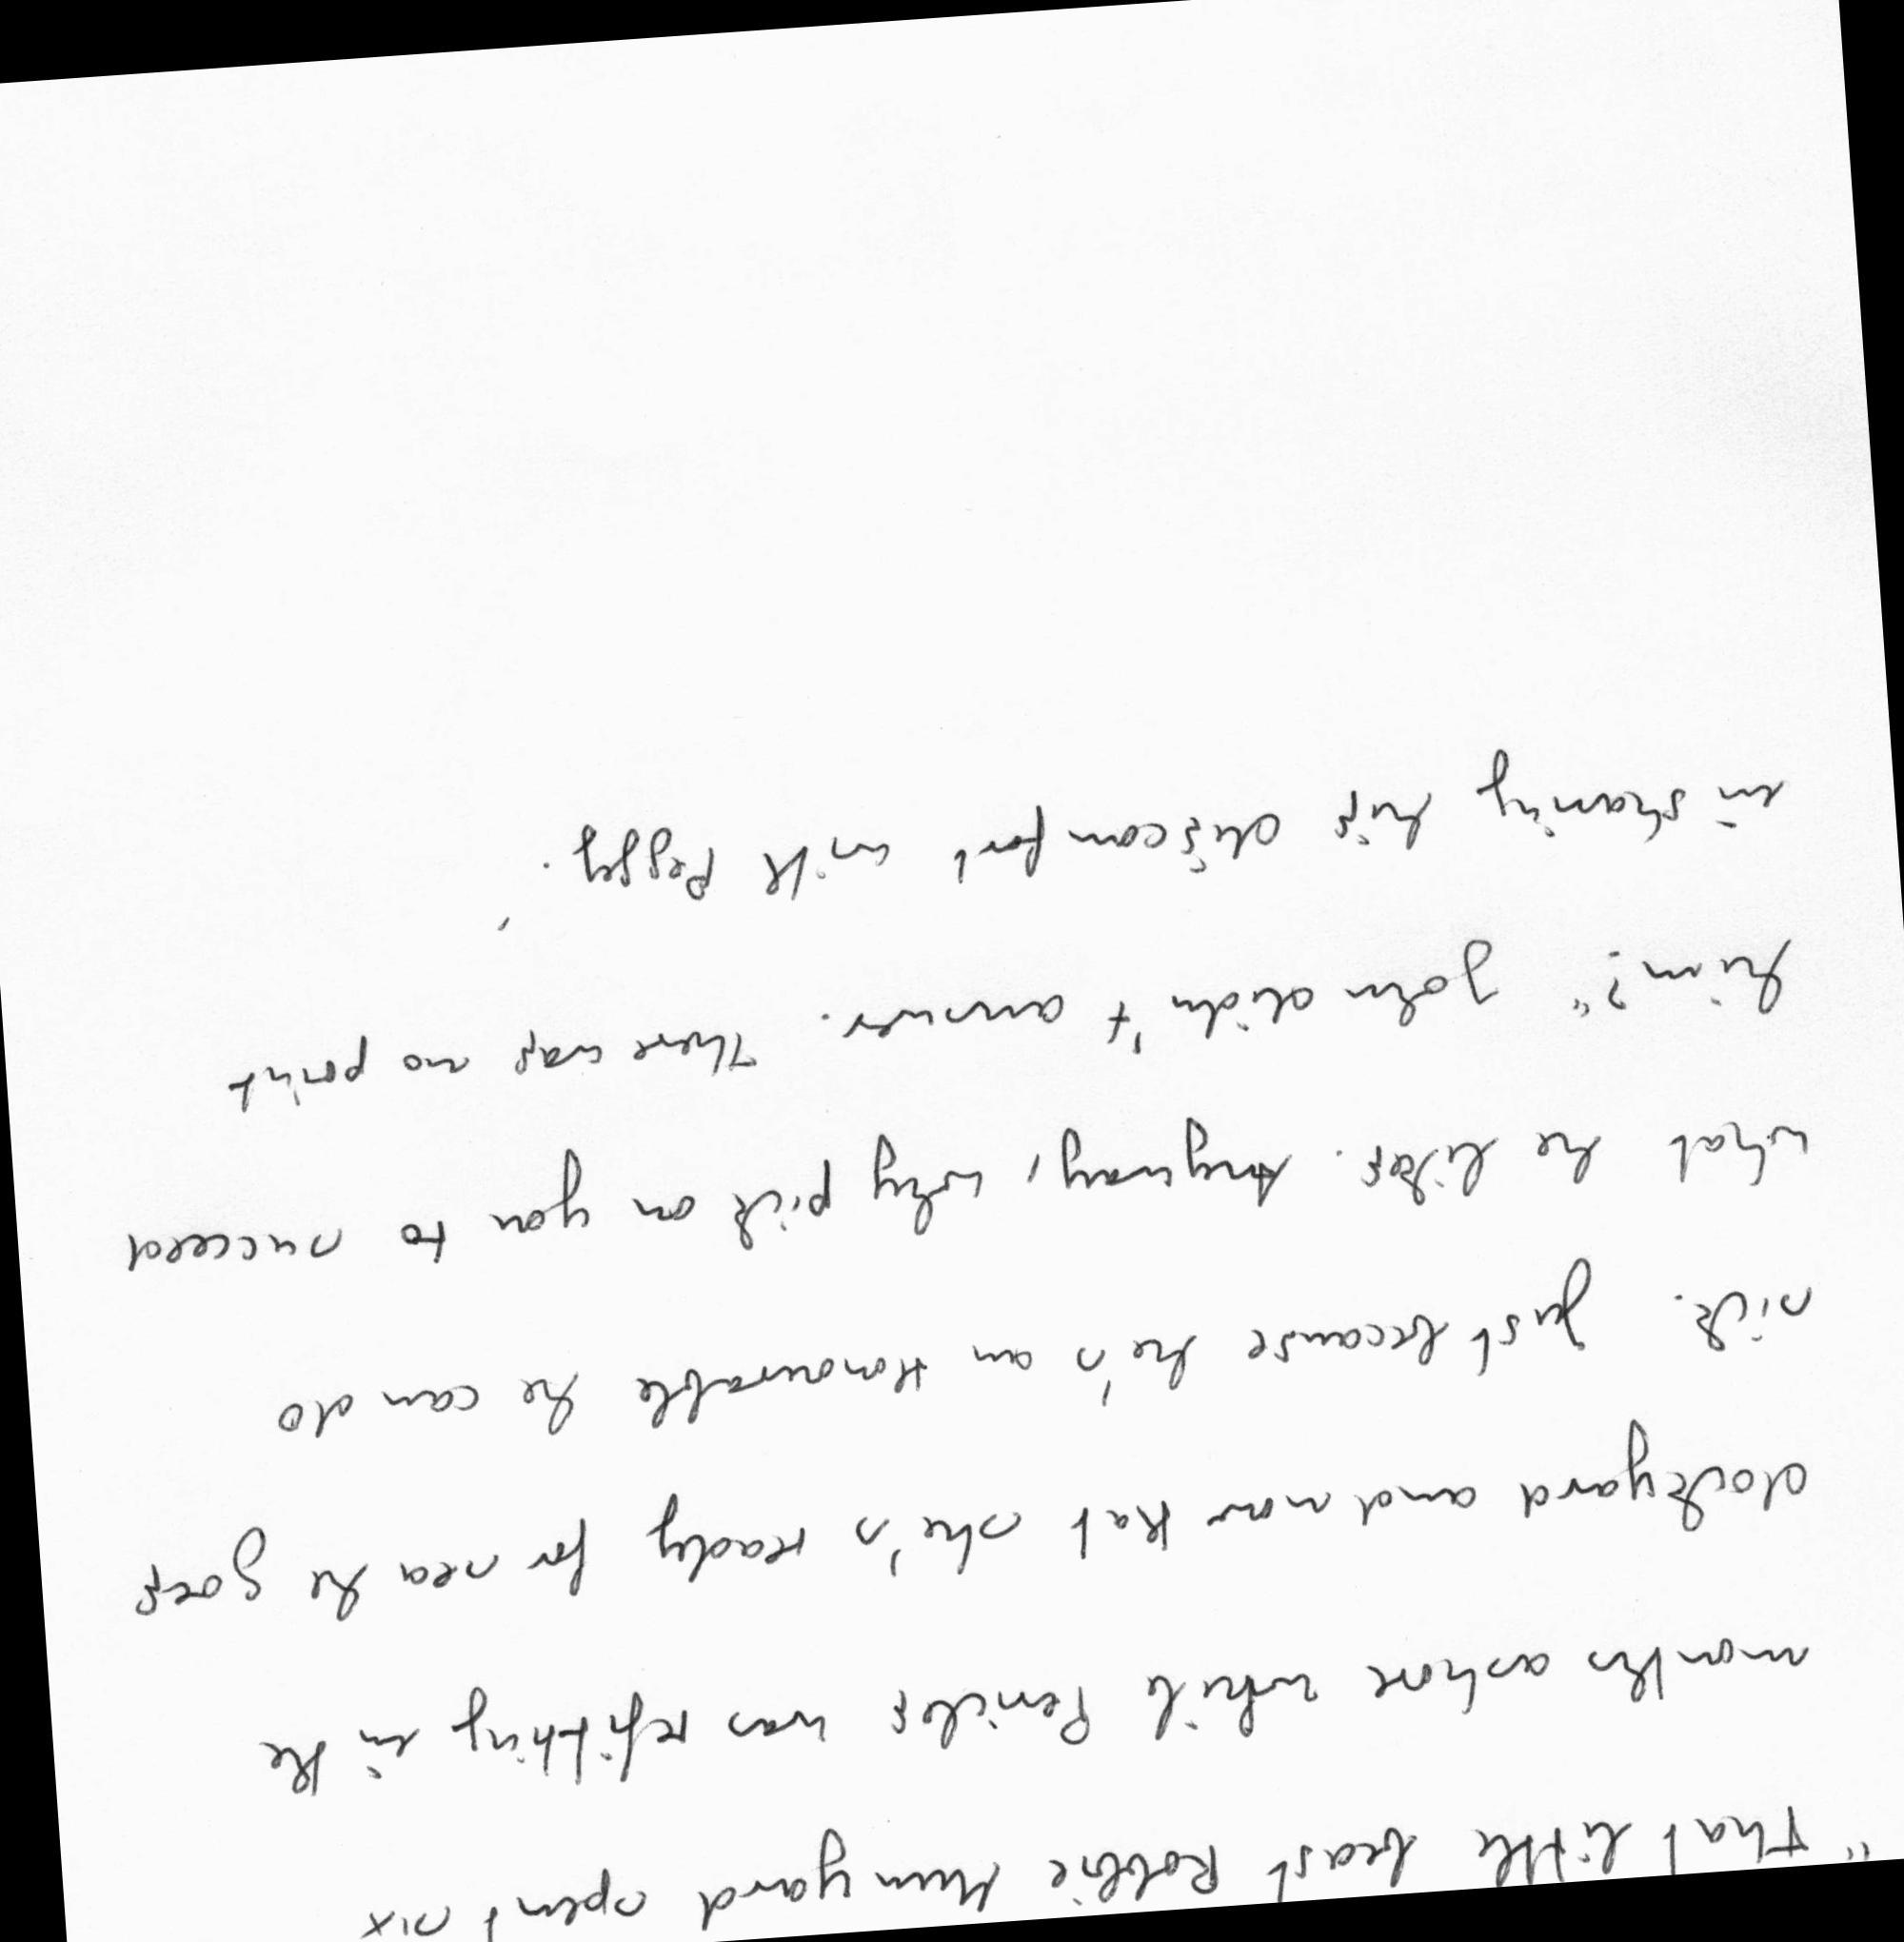 "That little beast Robbie Munyard spent six
months ashore while Pericles was refitting in the
dockyard and now that she's ready for sea he goes
sick. Just because he's an Honourable he can do
what he likes. Anyway, why pick on you to succeed
him?" John didn't answer. There was no point
in sharing his discomfort with Peggy.